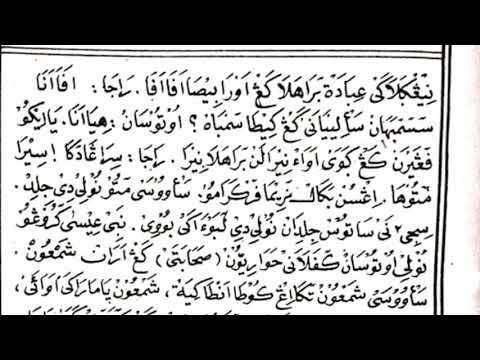 نيڠݢلاكي عبادة براهلا كڠ اورا بيصا افاافا . راجا : افاانا
سسمبهان سأليياني كڠ كيطا سمباه ؟ اوتوسان : هييا انا . ياايكو
فڠيرن كڠ كوي اواء نيرا لن براهلا نيرا . راجا : سراڠادكا ! سيرا
متوها . اڠسن بكال نريما فكرامو . سأووسى متو نولي دي جلد
سجي٢ ني ساتوس جلدان نولي دي لبوءاكي بووي . نبي عيسى كروڠو
نولي اوتوسان كفلاني حواريون (صحابتي) كڠ اران شمعون
سأووسى شمعون تكااڠ كوطا انطاكية، شمعون ياماراكي اواقي،